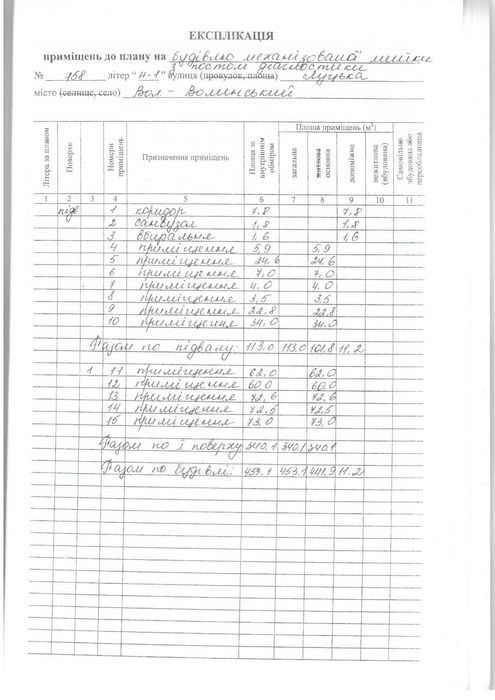 ЕКСПЛІКАЦІЯ
приміщень до плану на будівлю механізованої мийки
з постом діагностики
№ 158 літер “Н-1” вулиця (провулок, площа) Луцька
місто (селище, село) Вол-Волинський
Літера за планом Поверхи Номери приміщень Призначення приміщень Площа за внутрішнім обміром Площа приміщень (м²) Самовільно збудована або переобладнана
загальна житлова основна допоміжна нежитлова (вбудована)
1 2 3 4 5 6 7 8 9 10 11
підв 1 коридор 7,8 7,8
2 санвузол 1,8 1,8
3 вбиральня 1,6 1,6
4 приміщення 5,9 5,9
5 приміщення 24,6 24,6
6 приміщення 7,0 7,0
7 приміщення 4,0 4,0
8 приміщення 3,5 3,5
9 приміщення 22,8 22,8
10 приміщення 34,0 34,0
Разом по підвалу: 113.0 113.0 101.8 11.2
1 11 приміщення 62,0 62,0
12 приміщення 60.0 60.0
13 приміщення 72,6 72,6
14 приміщення 72,5 72,5
15 приміщення 73,0 73,0
Разом по I поверху 340.1 340.1 340.1
Разом по будівлі: 453.1 453.1 441.9 11.2